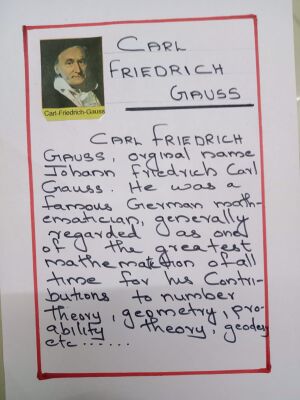 CARL
FRIEDRICH
GAUSS
Carl-Friedrich-Gauss
CARL FRIEDRICH
GAUSS, orginal name
Johann Friedrich Carl
Gauss. He was a
famous German math-
ematician, generally
regarded as one
of the greatest
mathematition of all
time for his Contri-
butions to number
theory, geometry, pro-
ability theory, geodesy
etc ......